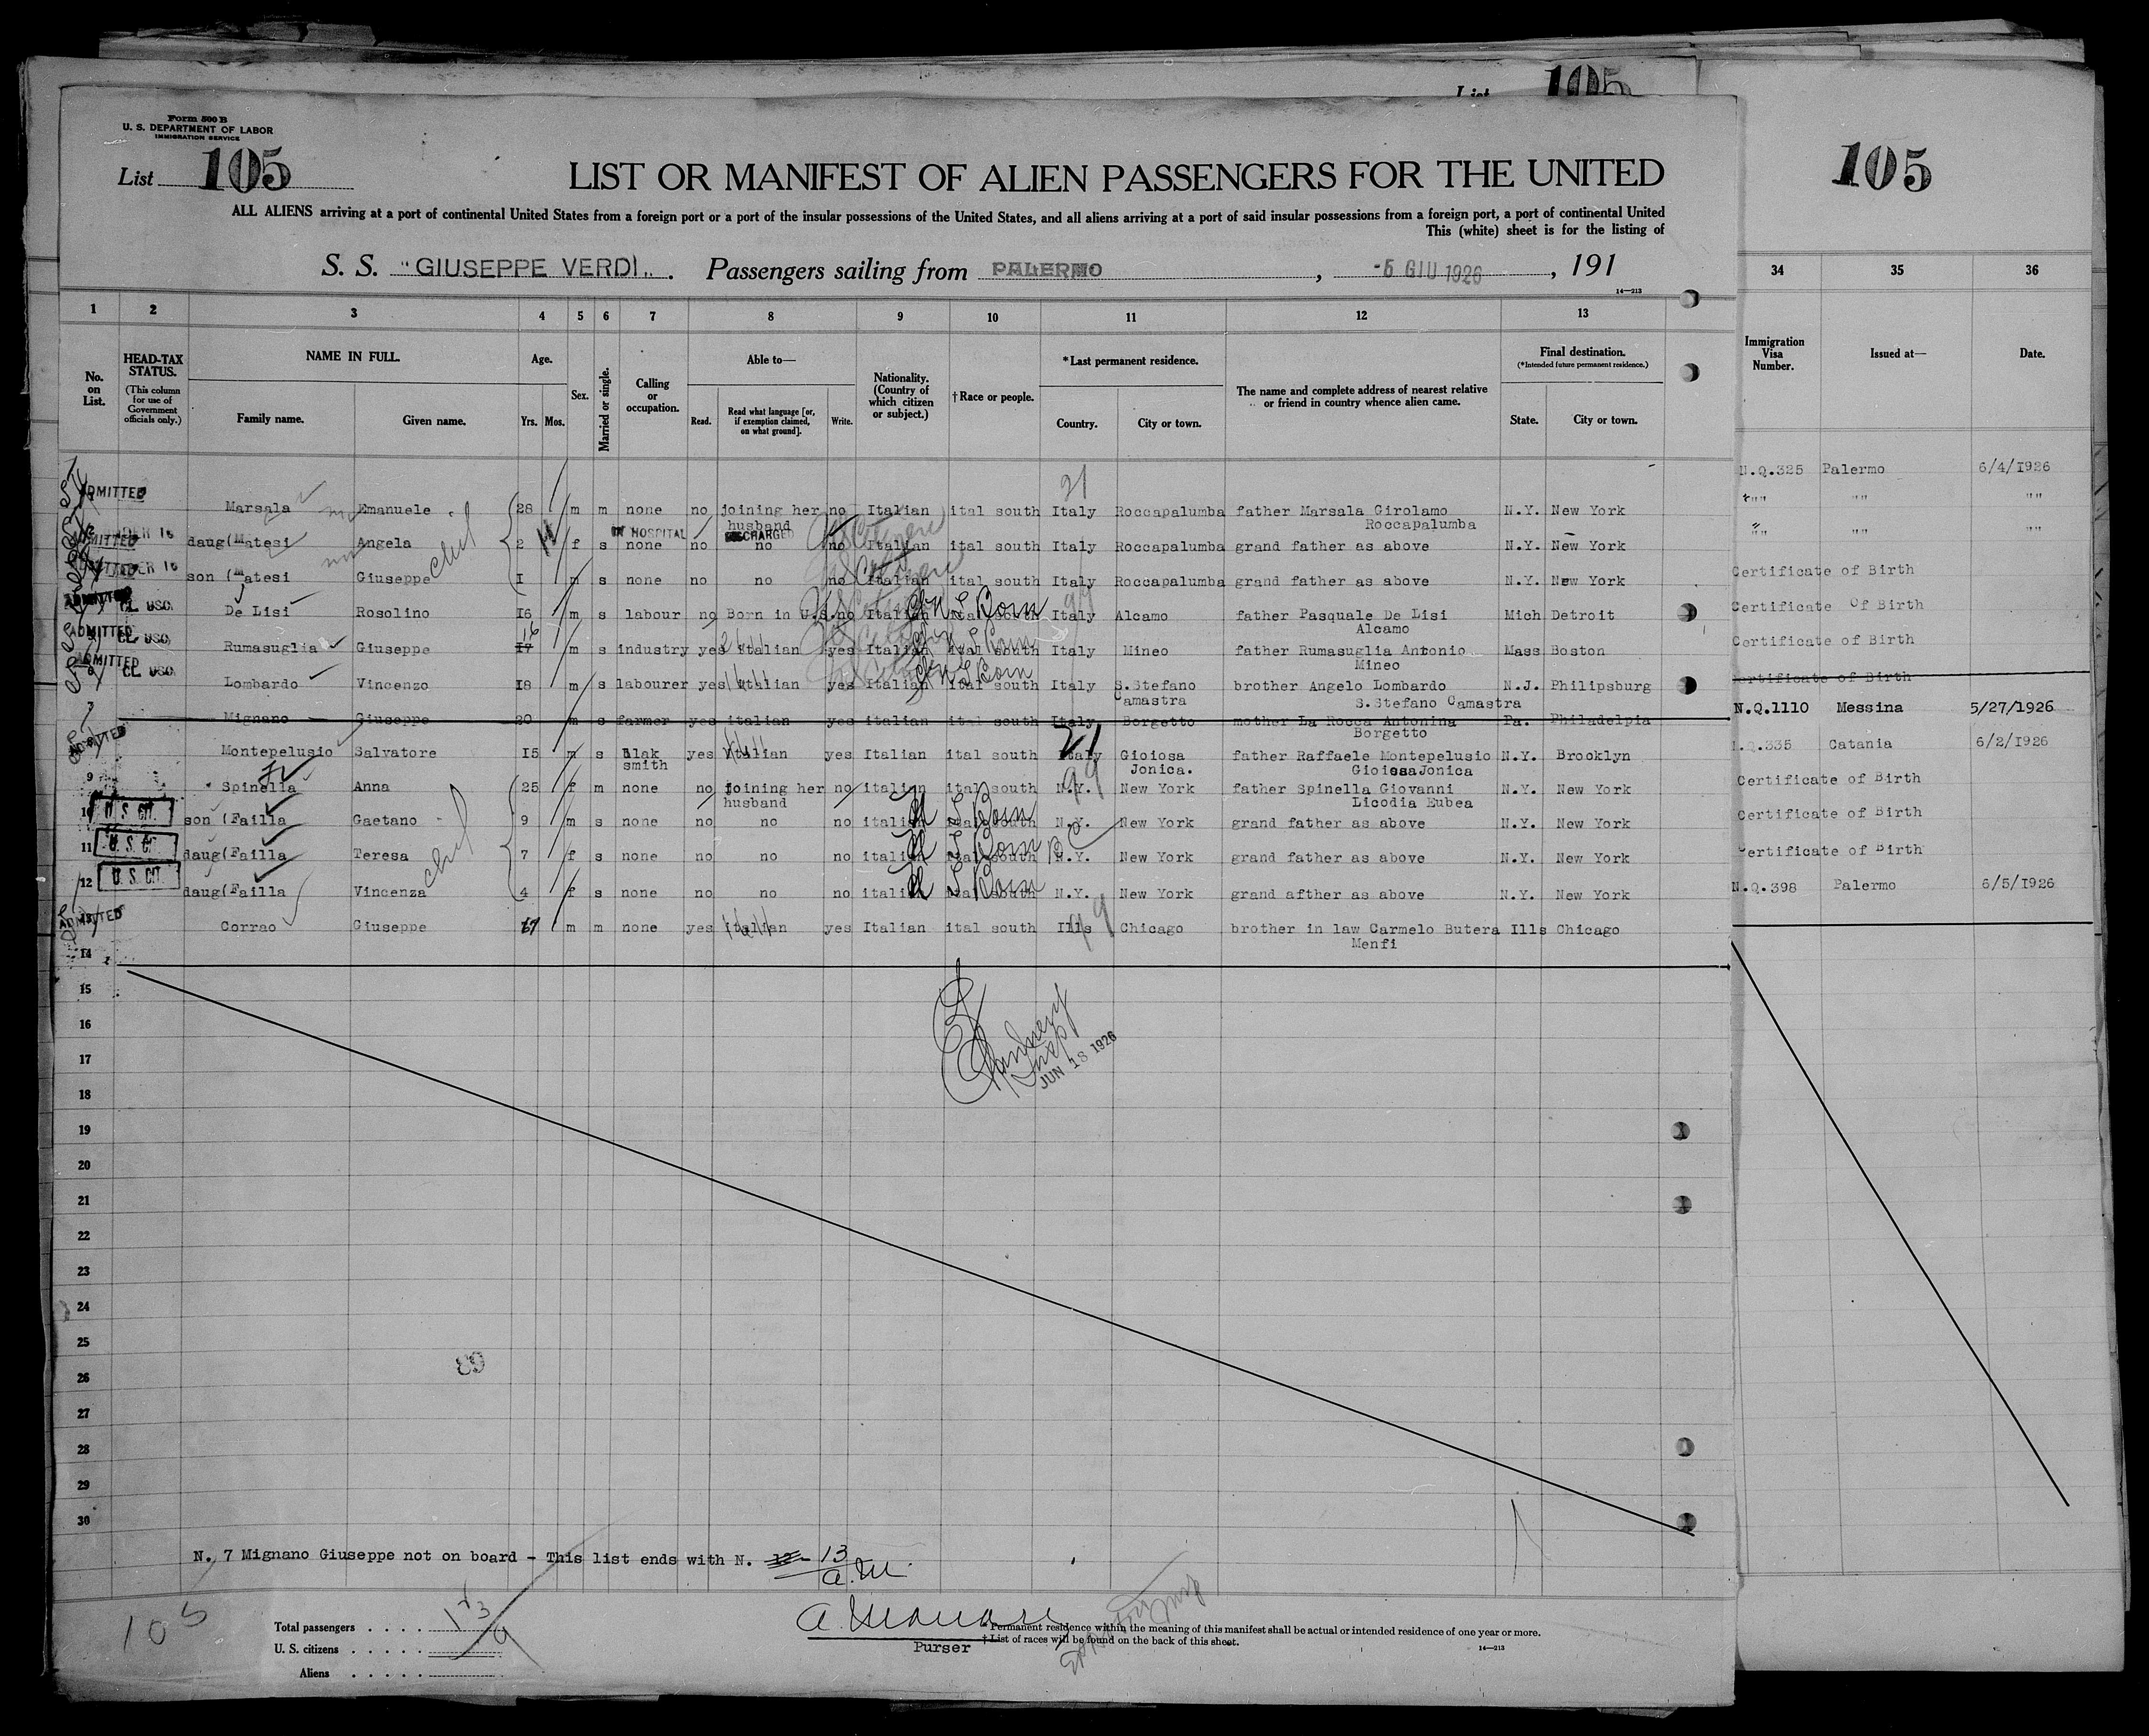 List 105
105
Form 500 B
U. S. DEPARTMENT OF LABOR
IMMIGRATION SERVICE
List 105
LIST OR MANIFEST OF ALIEN PASSENGERS FOR THE UNITED
ALL ALIENS arriving at a port of continental United States from a foreign port or a port of the insular possessions of the United States, and all aliens arriving at a port of said insular possessions from a foreign port, a port of continental United
This (white) sheet is for the listing of
S. S. "GIUSEPPE VERDI". Passengers sailing from PALERMO, -5 GIU 1926, 191
14—213
1 2 3 4 5 6 7 8 9 10 11 12 13 34 35 36
No. on List.
HEAD-TAX STATUS.
(This column for use of Government officials only.)
NAME IN FULL.
Family name. Given name.
Age.
Yrs. Mos.
Sex.
Married or single.
Calling or occupation.
Able to—
Read. Read what language [or, if exemption claimed, on what ground]. Write.
Nationality. (Country of which citizen or subject.)
†Race or people.
*Last permanent residence.
Country. City or town.
The name and complete address of nearest relative or friend in country whence alien came.
Final destination.
(*Intended future permanent residence.)
State. City or town.
Immigration Visa Number.
Issued at—
Date.
21
ADMITTED Marsala Emanuele 28 m m none no joining her no Italian ital south Italy Roccapalumba father Marsala Girolamo N.Y. New York
husband Roccapalumba
IN HOSPITAL DISCHARGED
daug(Matesi Angela 2 f s none no no no Italian ital south Italy Roccapalumba grand father as above N.Y. New York
son (Matesi Giuseppe I m s none no no no Italian ital south Italy Roccapalumba grand father as above N.Y. New York
CL USC. De Lisi Rosolino 16 m s labour no Born in U.S. no Italian ital south Italy Alcamo father Pasquale De Lisi Mich Detroit
Alcamo
16
ADMITTED CL USC. Rumasuglia Giuseppe 17 m s industry yes Italian yes Italian ital south Italy Mineo father Rumasuglia Antonio Mass Boston
Mineo
ADMITTED CL USC. Lombardo Vincenzo 18 m s labourer yes Italian yes Italian ital south Italy S.Stefano brother Angelo Lombardo N.J. Philipsburg
Camastra S.Stefano Camastra
7 Mignano Giuseppe 20 m s farmer yes italian yes italian ital south Italy Borgetto mother La Rocca Antonina Pa. Philadelpia
Borgetto
ADMITTED Montepelusio Salvatore 15 m s Blak yes Italian yes Italian ital south Italy Gioiosa father Raffaele Montepelusio N.Y. Brooklyn
smith Jonica. Gioiosa Jonica
9 Spinella Anna 25 f m none no joining her no italian ital south N.Y. New York father Spinella Giovanni N.Y. New York
husband Licodia Eubea
10 U. S. CIT. son (Failla Gaetano 9 m s none no no no italian ital south N.Y. New York grand father as above N.Y. New York
11 U. S. CIT. daug(Failla Teresa 7 f s none no no no italian ital south N.Y. New York grand father as above N.Y. New York
12 U. S. CIT. daug(Failla Vincenza 4 f s none no no no italian ital south N.Y. New York grand afther as above N.Y. New York
ADMITTED Corrao Giuseppe 67 m m none yes Italian yes Italian ital south Ills Chicago brother in law Carmelo Butera Ills Chicago
Menfi
N.Q.325 Palermo 6/4/1926
"" "" ""
"" "" ""
Certificate of Birth
Certificate Of Birth
Certificate of Birth
Certificate of Birth
N.Q.1110 Messina 5/27/1926
N.Q.335 Catania 6/2/1926
Certificate of Birth
Certificate of Birth
Certificate of Birth
N.Q.398 Palermo 6/5/1926
14
15
16
17
18
19
20
21
22
23
24
25
26
27
28
29
30
Inspt
JUN 18 1926
89
N. 7 Mignano Giuseppe not on board - This list ends with N. 13
a.M.
105
Total passengers
U. S. citizens
Aliens
Purser
*Permanent residence within the meaning of this manifest shall be actual or intended residence of one year or more.
†List of races will be found on the back of this sheet.
14—213